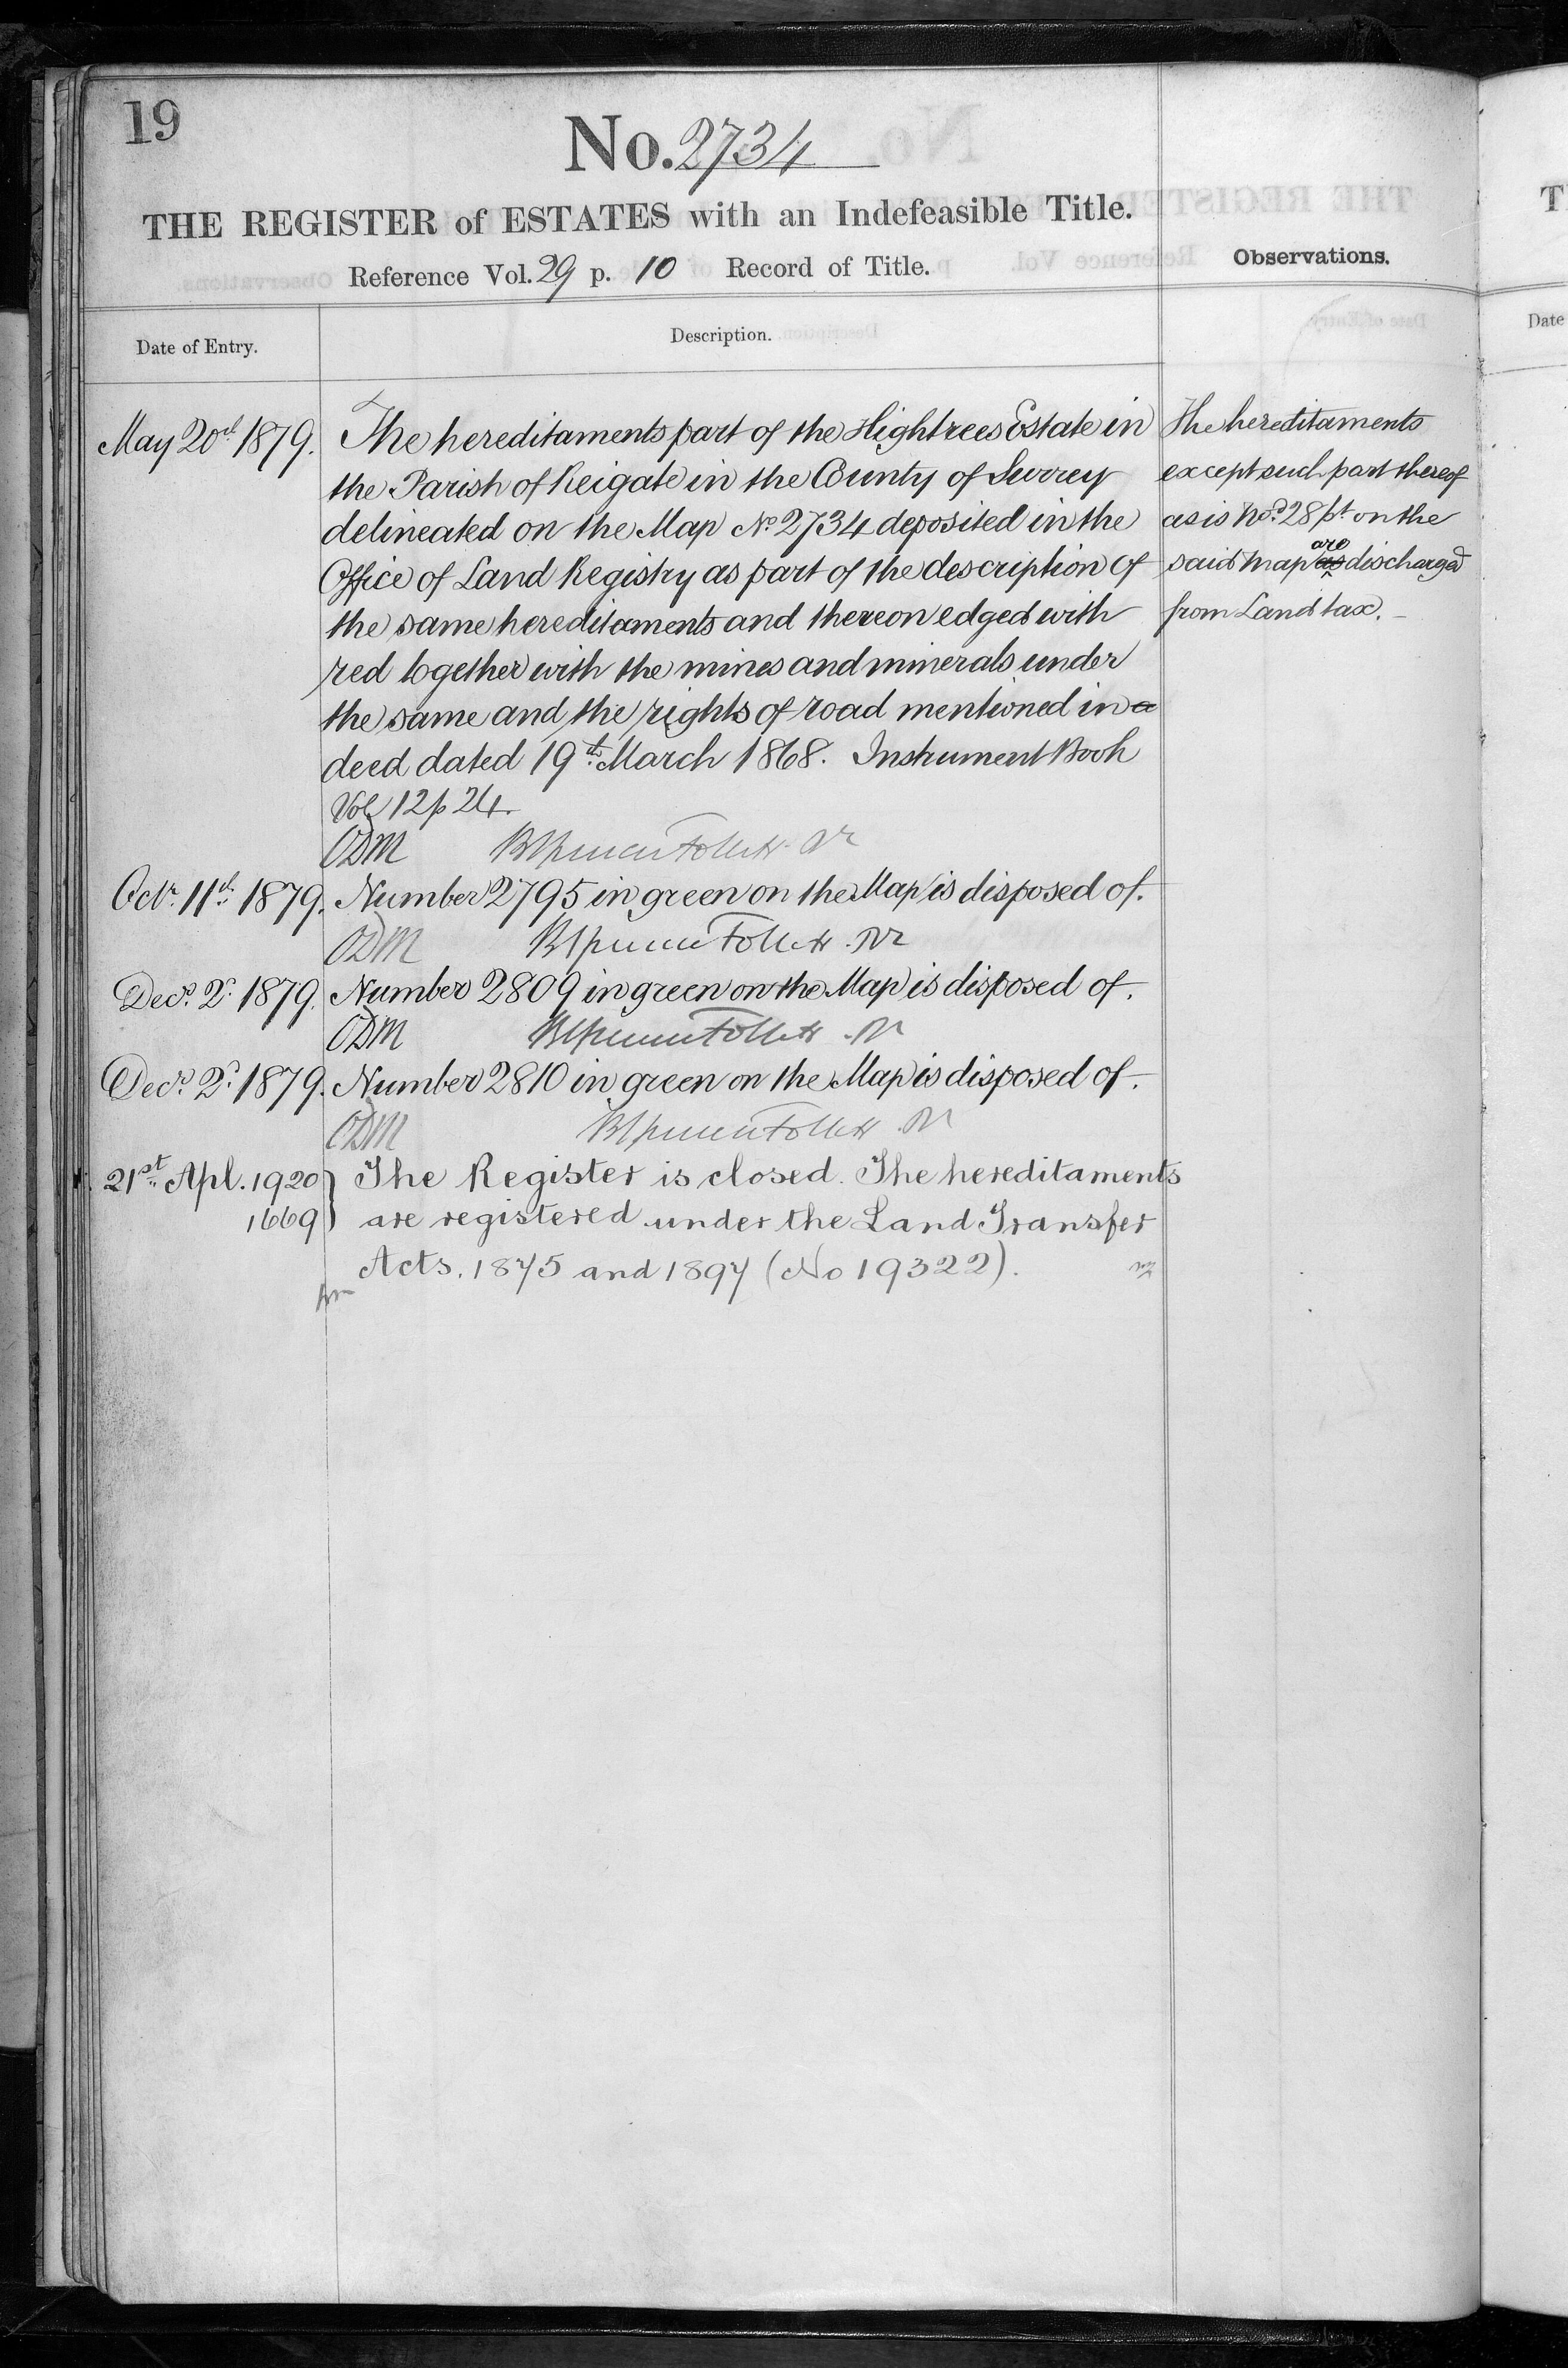 19
No. 2734
THE REGISTER of ESTATES with an Indefeasible Title.
Reference Vol. 29 p. 10 Record of Title.
Observations.
Date of Entry.
Description.
May 20th 1879. The hereditaments part of the Hightrees Estate in
the Parish of Reigate in the County of Surrey
delineated on the Map No 2734 deposited in the
Office of Land Registry as part of the description of
the same hereditaments and thereon edged with
red together with the mines and minerals under
the same and the rights of road mentioned in a
deed dated 19th March 1868. Instrument Book
Vol 12 p 24.
ODM
The hereditaments
except such part thereof
as is No. 28 pt on the
said map as are discharged
from Land tax.
Octr. 11th 1879. Number 2795 in green on the Map is disposed of.
ODM
Decr. 2d 1879. Number 2809 in green on the Map is disposed of.
ODM
Decr. 2d 1879. Number 2810 in green on the Map is disposed of.
ODM
21st Apl. 1920 } The Register is closed. The hereditaments
1669 are registered under the Land Transfer
Acts, 1875 and 1897 (No 19322).
T
Date